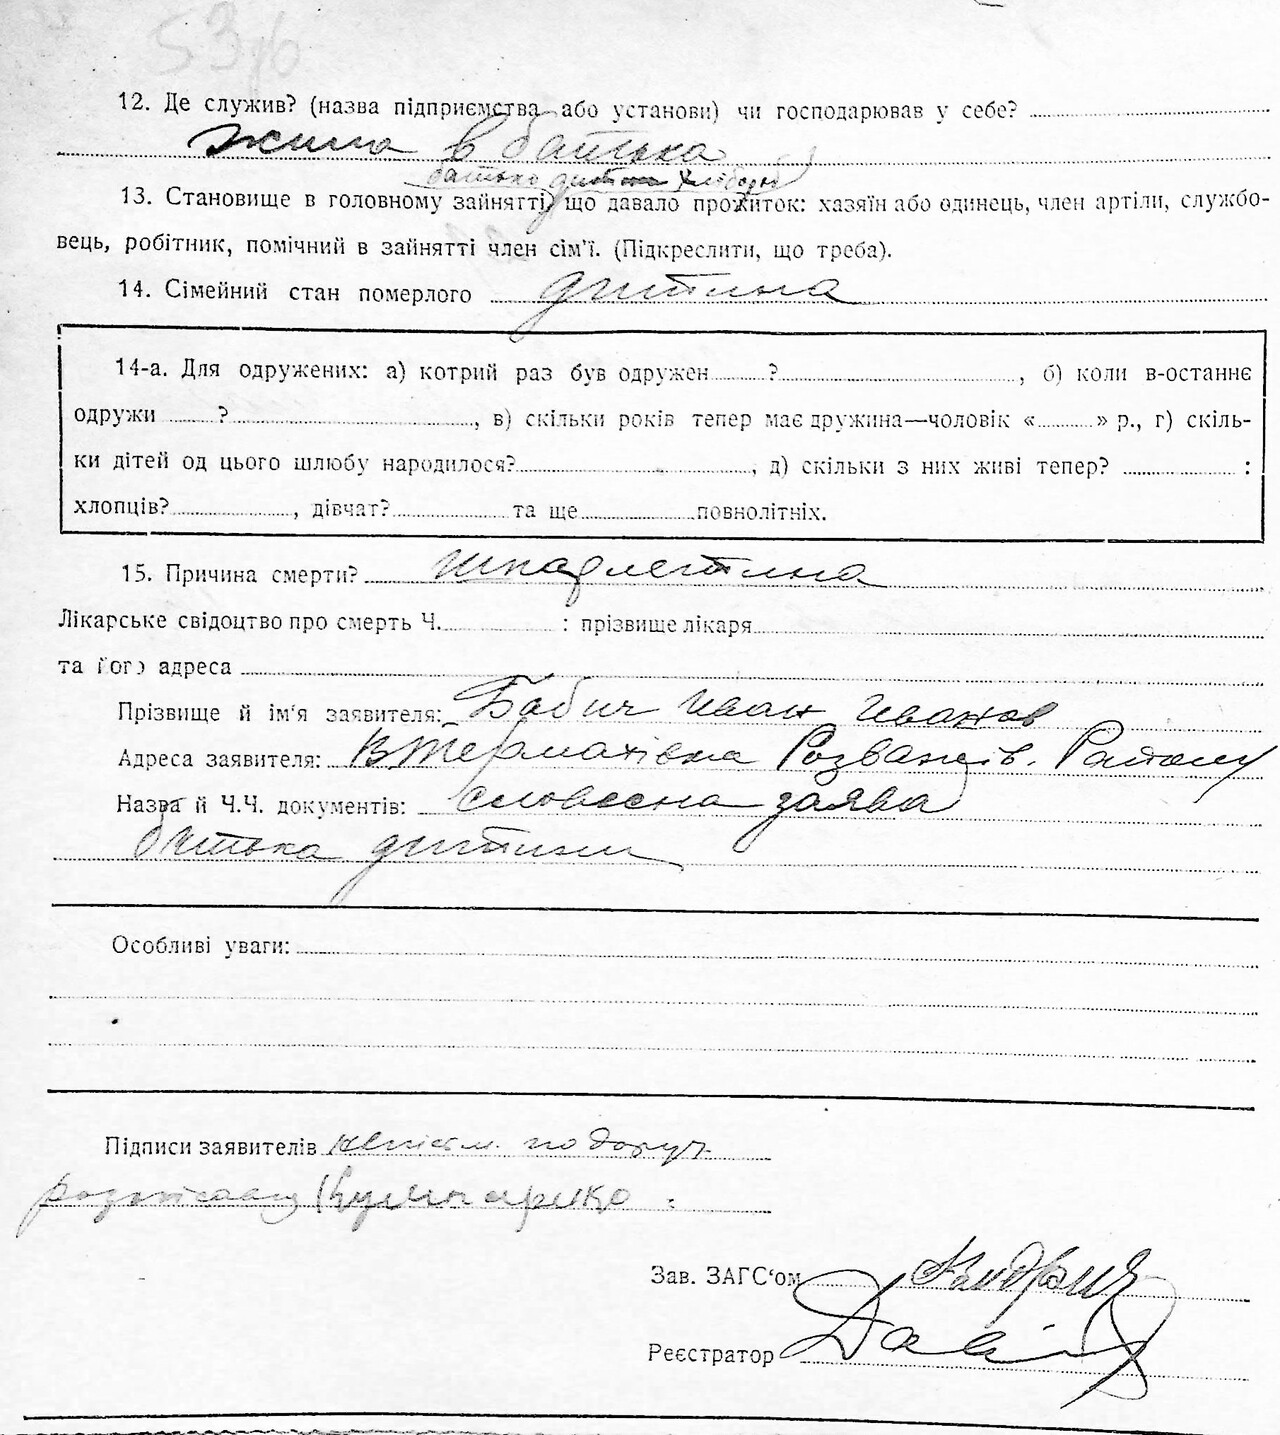 12. Де служив? (назва підприємства або установи) чи господарював у себе?
жила в батька
батько дитини хлібороб
13. Становище в головному зайнятті, що давало прожиток: хазяїн або одинець, член артіли, службо-
вець, робітник, помічний в зайнятті член сім'ї. (Підкреслити, що треба).
14. Сімейний стан померлого дитина
14-а. Для одружених: а) котрий раз був одружен ? , б) коли в-останнє
одружи ? , в) скільки років тепер має дружина—чоловік « » р., г) скіль-
ки дітей од цього шлюбу народилося? , д) скільки з них живі тепер? :
хлопців? , дівчат? та ще повнолітніх.
15. Причина смерти? шкарлетина
Лікарське свідоцтво про смерть Ч. : прізвище лікаря
та його адреса
Прізвище й ім'я заявителя: Бабич Иван Иванов
Адреса заявителя: в Термахівка Розважів. Району
Назва й Ч.Ч. документів: словесна заява
батька дитини
Особливі уваги:
Підписи заявителів непісм. по доруч.
Зав. ЗАГС'ом
Реєстратор